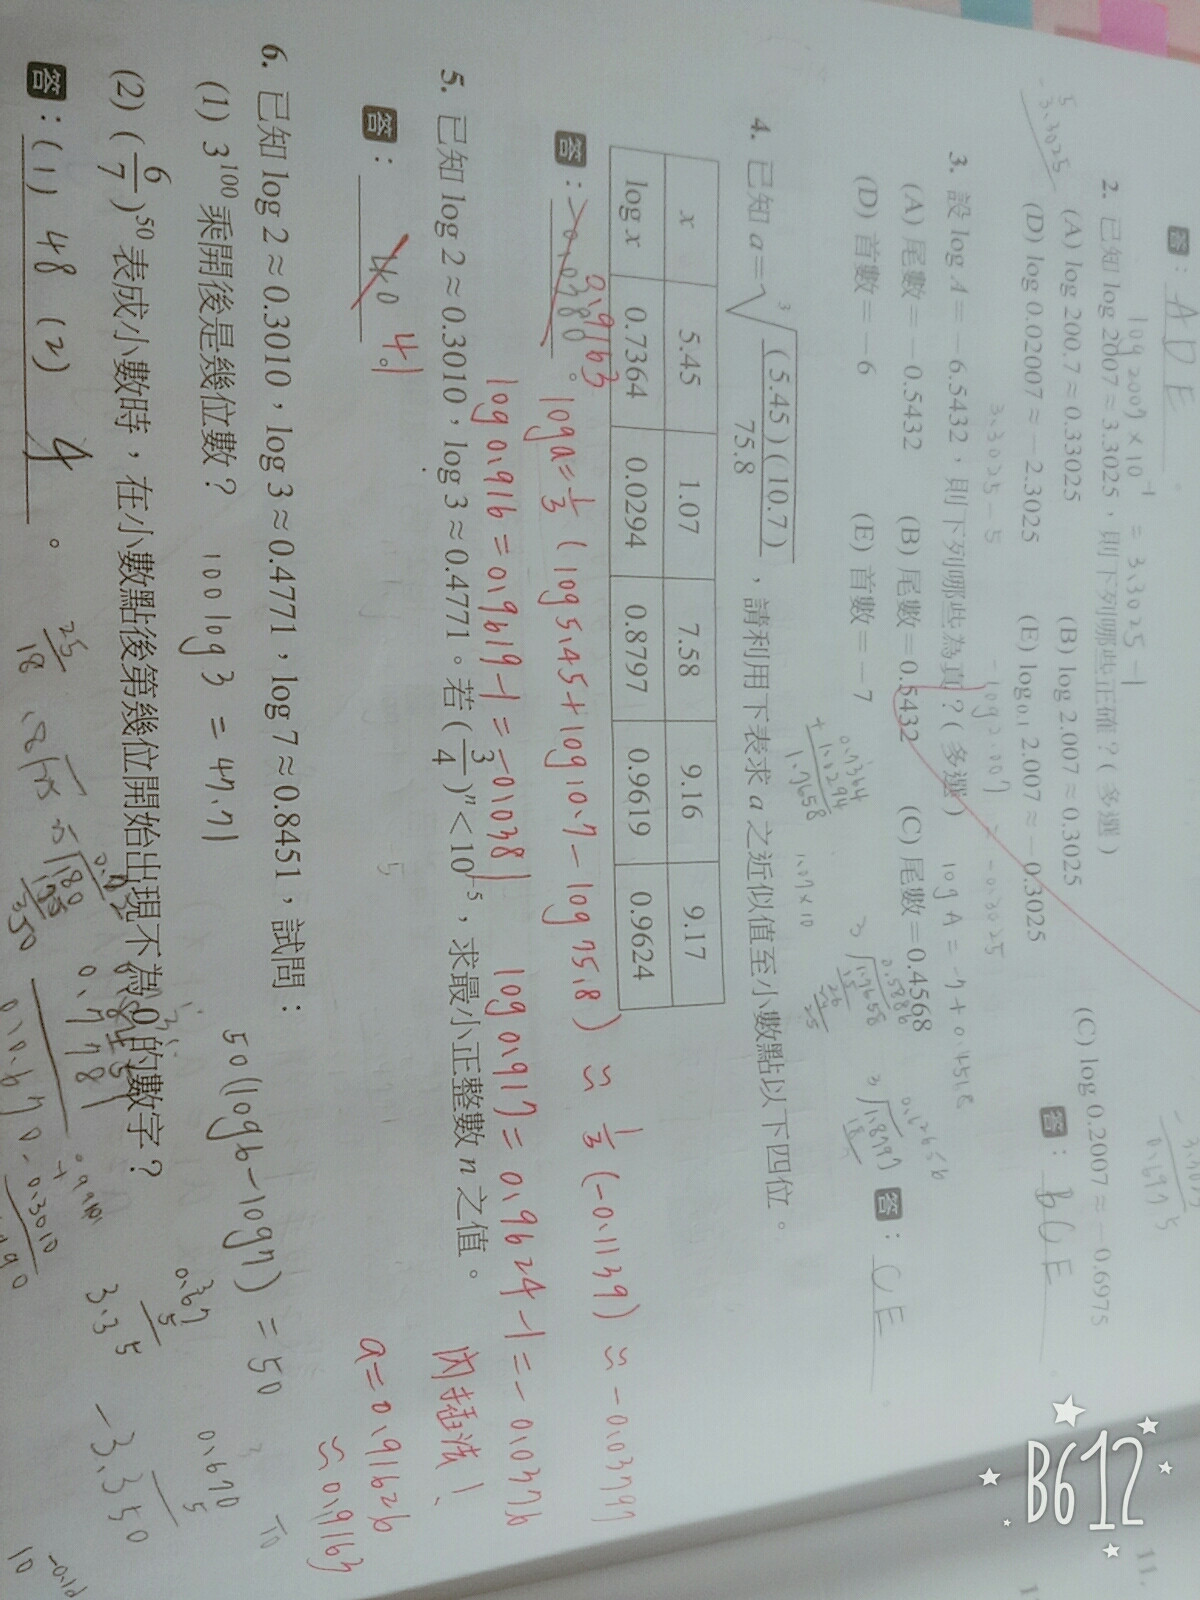 答：ADE。
log 2007 × 10⁻¹ = 3.3025 − 1
2. 已知 log 2007 ≈ 3.3025，則下列哪些正確？(多選)
(A) log 200.7 ≈ 0.33025 (B) log 2.007 ≈ 0.3025 (C) log 0.2007 ≈ −0.6975
(D) log 0.02007 ≈ −2.3025 (E) log₀.₁ 2.007 ≈ −0.3025
答：BCE
5
- 3.3025
3.3025 − 5
−log 2.007 = −0.3025
3. 設 log A = −6.5432，則下列哪些為真？(多選)
log A = −7 + 0.4568
(A) 尾數 = −0.5432 (B) 尾數 = 0.5432 (C) 尾數 = 0.4568
(D) 首數 = −6 (E) 首數 = −7
答：CE
0.7364
+ 1.0294
1.7658
1.07×10
4. 已知 a = ³√((5.45)(10.7)/75.8)，請利用下表求 a 之近似值至小數點以下四位。
x 5.45 1.07 7.58 9.16 9.17
log x 0.7364 0.0294 0.8797 0.9619 0.9624
答：-0.0380 0.9163。
log a = 1/3 (log 5.45 + log 10.7 − log 75.8) ≈ 1/3 (−0.1139) ≈ −0.0379
log 0.916 = 0.9619 − 1 = −0.0381
log 0.917 = 0.9624 − 1 = −0.0376
內插法!
a = 0.91626
≈ 0.9163
5. 已知 log 2 ≈ 0.3010，log 3 ≈ 0.4771。若 (3/4)ⁿ < 10⁻⁵，求最小正整數 n 之值。
答：40 41。
6. 已知 log 2 ≈ 0.3010，log 3 ≈ 0.4771，log 7 ≈ 0.8451，試問：
(1) 3¹⁰⁰ 乘開後是幾位數？
100 log 3 = 47.71
50(log 6 − log 7) = 50
(2) (6/7)⁵⁰ 表成小數時，在小數點後第幾位開始出現不為 0 的數字？
答：(1) 48 (2) 4。
25
18
0.778
0.067
5
3.35
0.670
5
−3.350
B612
11.